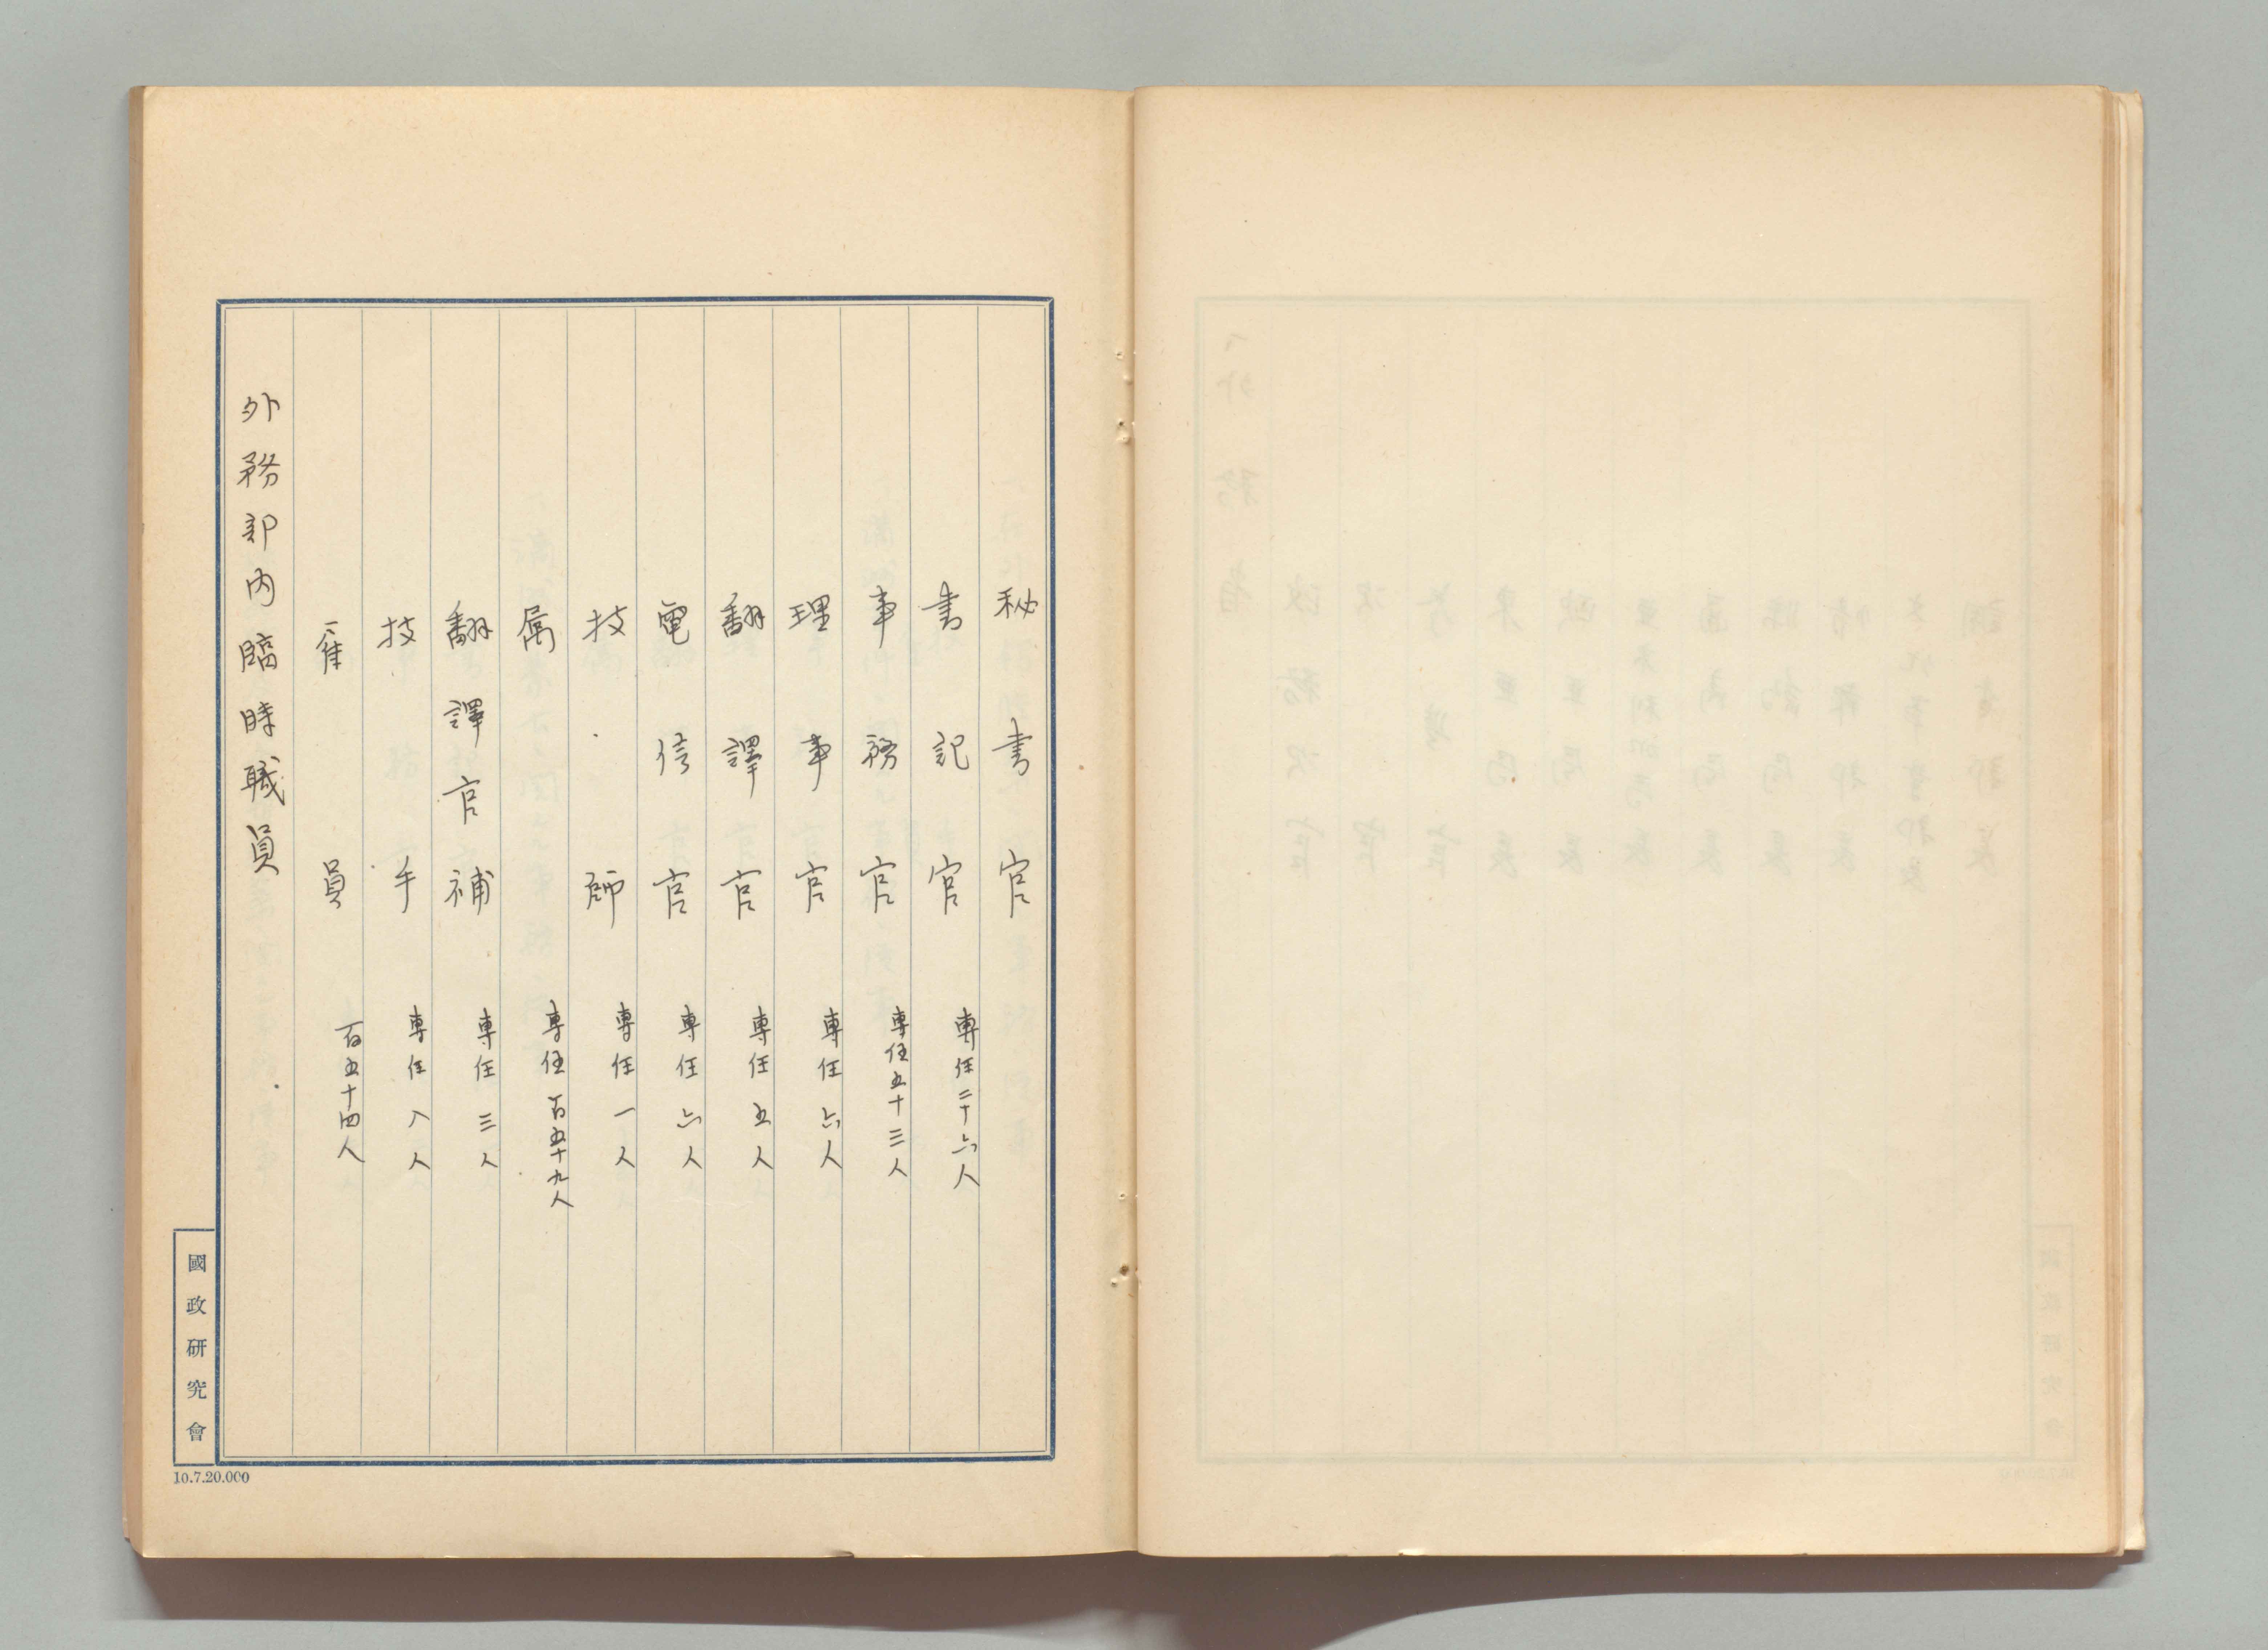 秘書官
書記官 専任二十六人
事務官 専任五十三人
理事官 専任六人
翻譯官 専任五人
電信官 専任六人
技師 専任一人
属 専任百五十九人
翻譯官補 専任三人
技手 専任八人
雇員 百五十四人
外務部内臨時職員
國政研究會
10.7.20.000